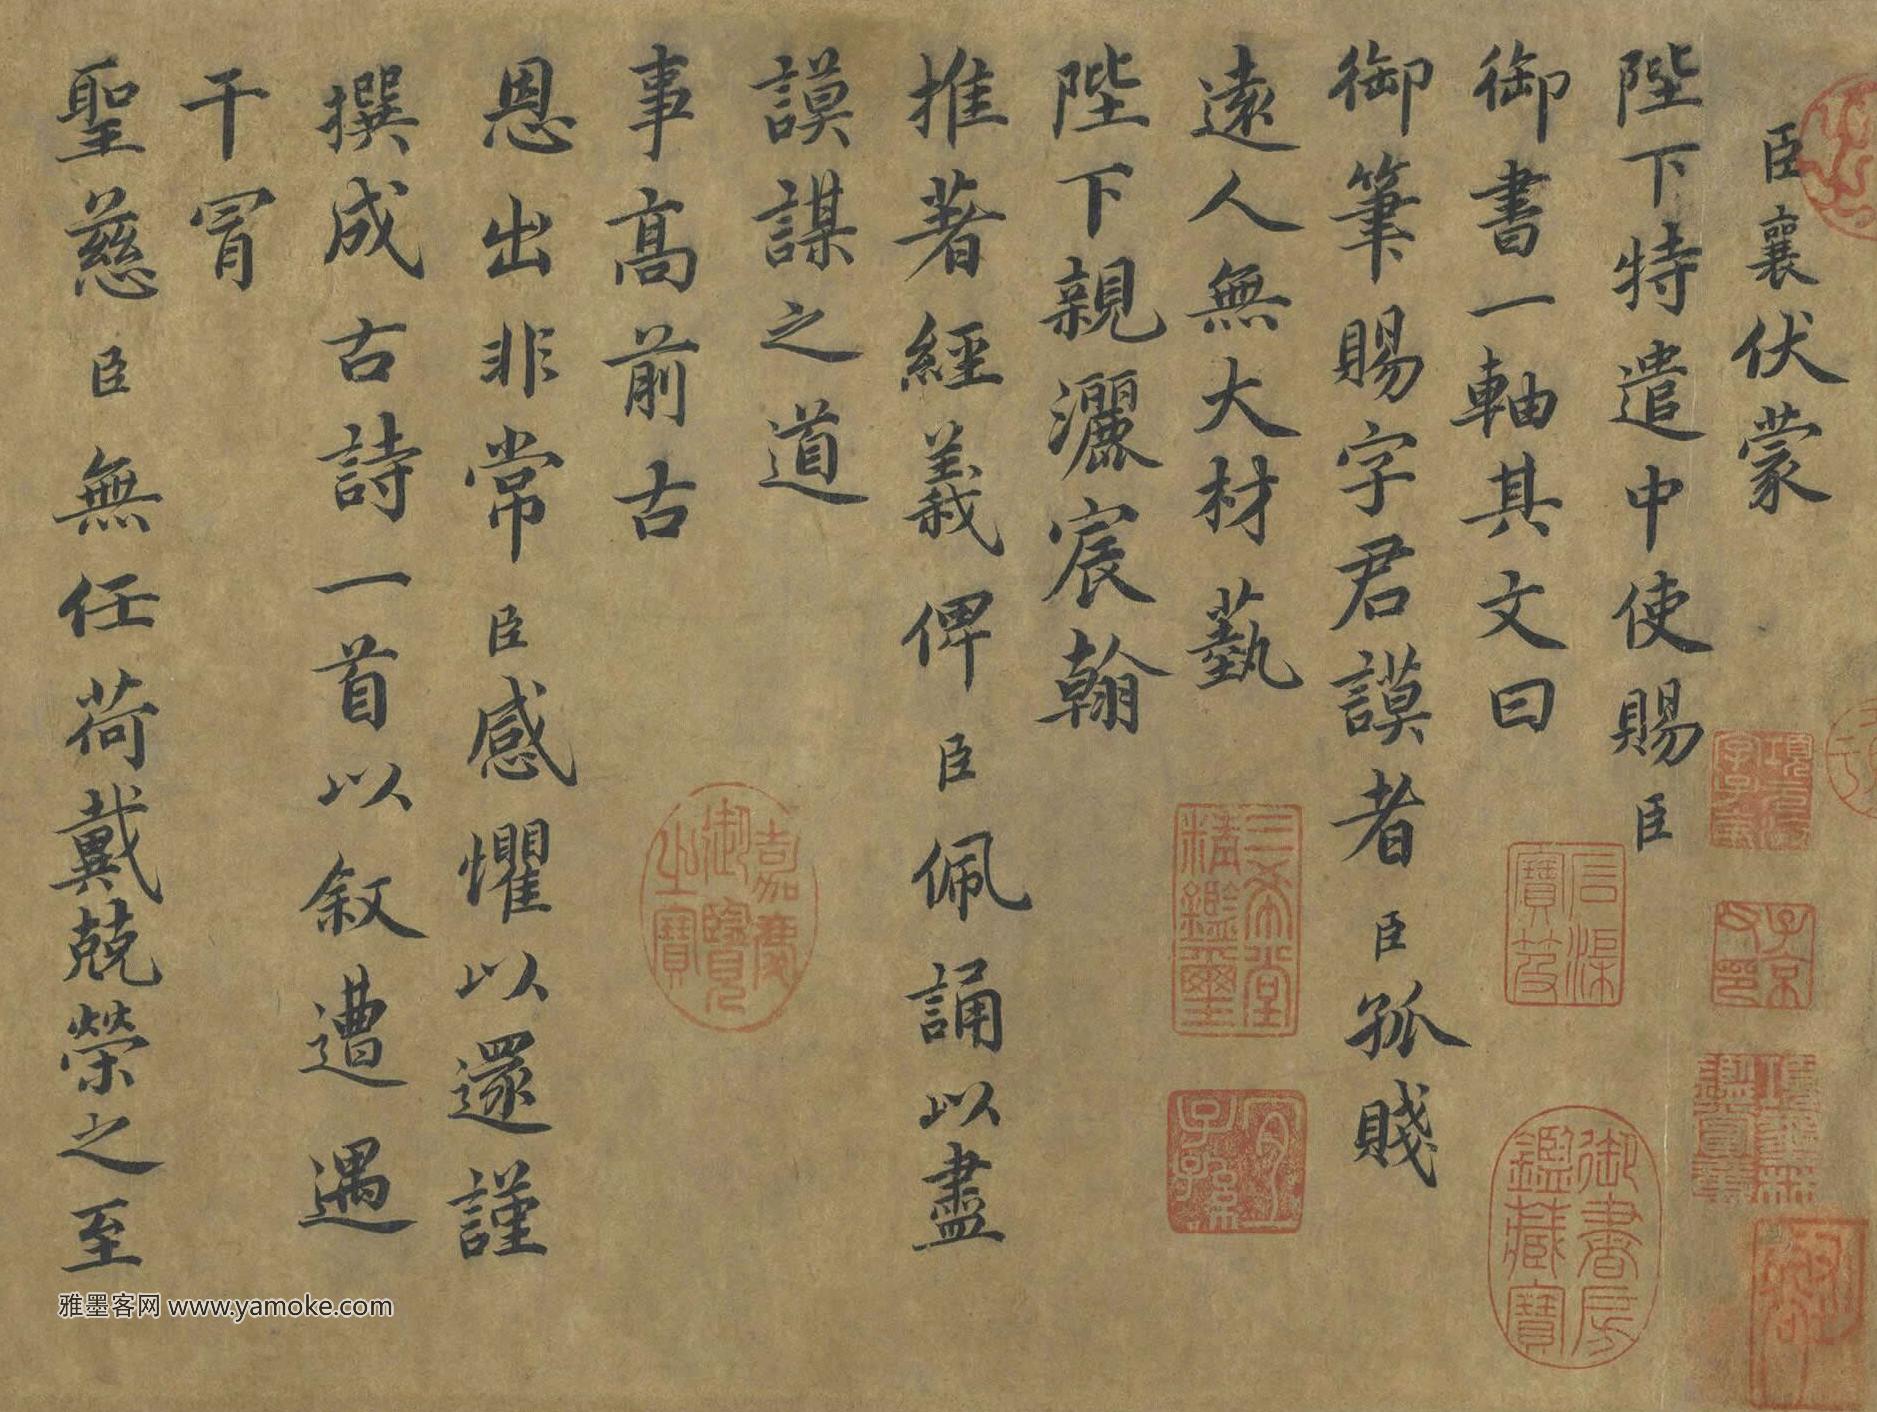 臣襄伏蒙
陛下特遣中使賜臣
御書一軸其文曰
御筆賜字君謨者臣孤賤
遠人無大材藝
陛下親灑宸翰
推著經義俾臣佩誦以盡
謨謀之道
事高前古
恩出非常臣感懼以還謹
撰成古詩一首以敘遭遇
干冒
聖慈臣無任荷戴兢榮之至
石渠寶笈
御書房鑑藏寶
三希堂精鑑璽
宜子孫
嘉慶御覽之寶
雅墨客网 www.yamoke.com